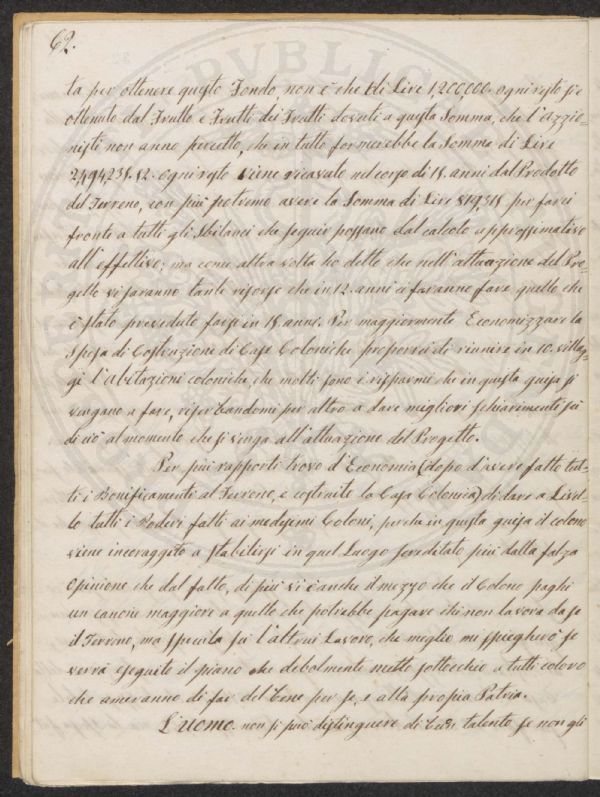 62.
ta per ottenere questo Fondo non è che di Lire 1,200,000. ogni resto si è
ottenuto dal Frutto e Frutti dei Frutti dovuti a questa Somma, che l'Azzio-
nisti non anno percetto, che in tutto formerebbe la Somma di Lire
2,494,231.82. ogni resto viene ricavato nel corso di 18. anni dal Prodotto
del Terreno, con più potremo avere la Somma di Lire 819,318 per farci
fronte a tutti gli Sbilanci che seguir possano dal calcolo approssimativo
all'effettivo; ma come altra volta ho detto che nell'attuazione del Pro-
getto vi saranno tante risorse che in 12. anni ci faranno fare quello che
è stato preveduto farsi in 18. anni. Per maggiormente Economizzare la
Spesa di Costruzione di Case Coloniche proporrei di riunire in 10. Villag-
gi l'abitazioni coloniche, che molti sono i risparmi che in questa guisa si
vengano a fare, riserbandomi per altro a dare migliori schiarimenti su
di ciò al momento che si venga all'attuazione del Progetto.
Per più rapporti trovo d'Economia (dopo d'avere fatto tut-
ti i Bonificamenti al Terreno, e costruite la Casa Colonica) di dare a Livel-
lo tutti i Poderi fatti ai medesimi Coloni, perche in questa guisa il colono
viene incoraggito a stabilirsi in quel Luogo screditato più dalla falza
opinione che dal fatto, di più vi è anche il mezzo che il Colono paghi
un canone maggiore a quello che potrebbe pagare chi non lavora da se
il Terreno, ma specula su l'altrui Lavoro, che meglio mi spiegherò se
verrà eseguito il piano che debolmente metto sottocchio a tutti coloro
che ameranno di far del bene per se, e alla propia Patria.
L'uomo non si può distinguere di talento se non gli